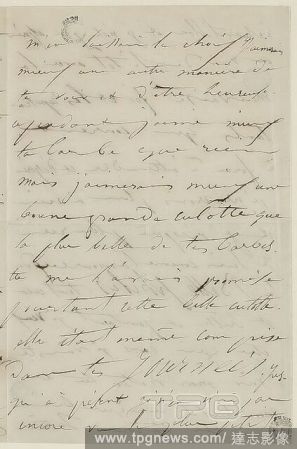 mieux une autre manière de
te voir et d'être heureuse
cependant j'aime mieux
ta barbe que rien
mais j'aimerais mieux une
bonne grande culotte que
la plus belle de tes barbes
tu me l'avais promise
pourtant cette belle culotte
elle était même comprise
dans tes
qu'à présent je n'ai
encore
TPG
www.tpgnews.com / 達志影像